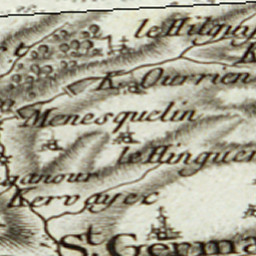 le Hilguy
K. Ourrien
Menesquelin
le Hinguer
ganour
Kervayer
St. Germa